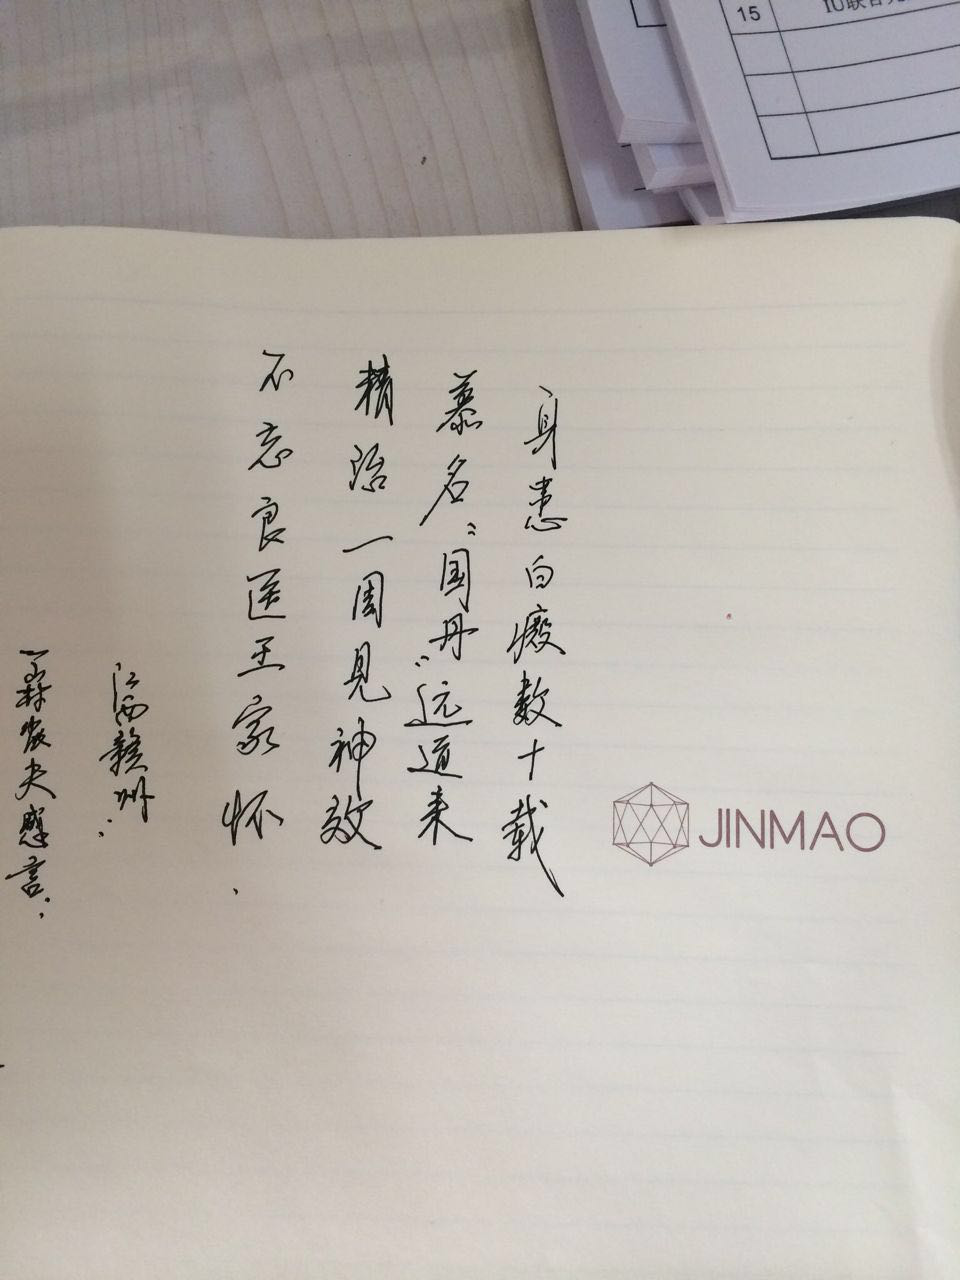 15
身患白癜数十载
慕名“国丹”远道来
精治一周见神效
不忘良医王家怀.
江西赣州
森农夫感言
JINMAO